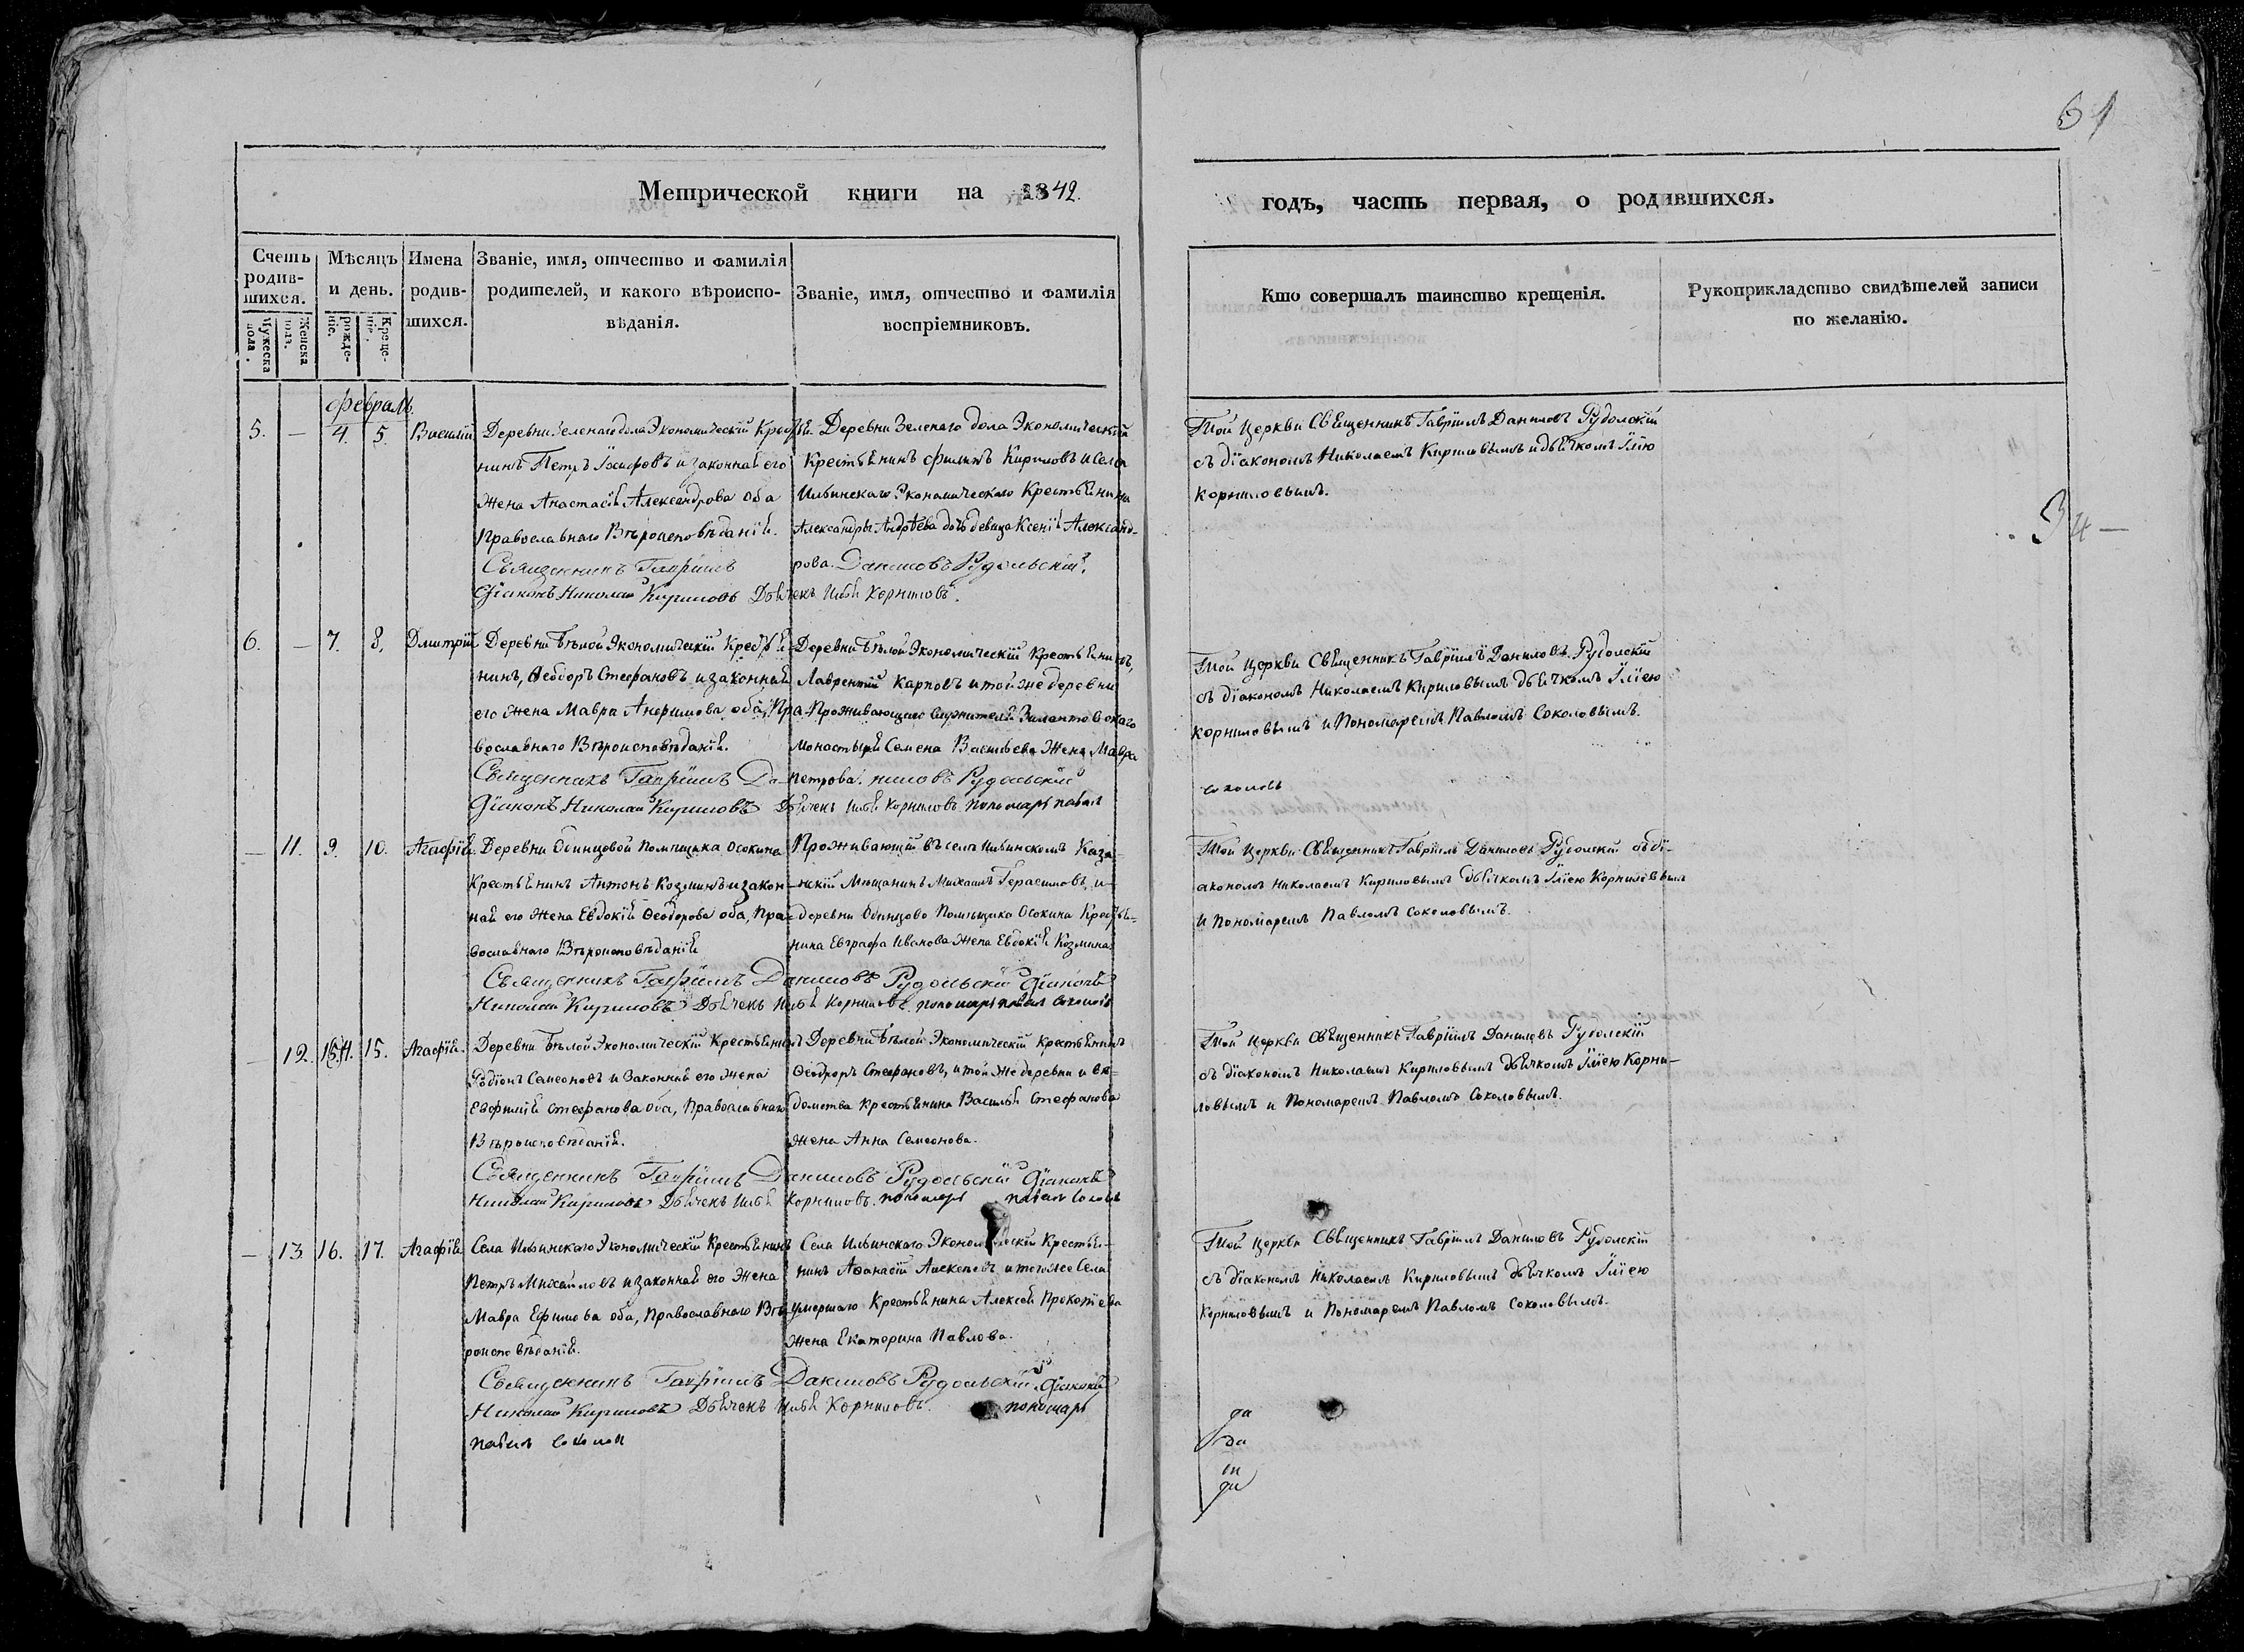 61
Метрической книги на 1842.
годъ, часть первая, о родившихся.
Счетъ родив-шихся.
Мужеска пола.
Женска пола.
Мѣсяцъ и день.
рожде-ніе.
Креще-ніе.
Имена родив-шихся.
Званіе, имя, отчество и фамилія
родителей, и какого вѣроиспо-
вѣданія.
Званіе, имя, отчество и фамилія
воспріемниковъ.
Кто совершалъ таинство крещенія.
Рукоприкладство свидѣтелей записи
по желанію.
Февраль.
5. — 4. 5. Василій
Деревни Зеленаго дола Экономическій Крестья-
нинъ Петръ Іосифовъ и законная его
жена Анастасія Александрова оба
православнаго Вѣроисповѣданія.
Деревни Зеленаго дола Экономическій
Крестьянинъ Филипъ Кириловъ и Села
Ильинскаго Экономическаго Крестьянина
Александры Андрѣева дочь девица Ксенія Александ-
рова.
Священникъ Гавріилъ Даниловъ Рудольскій.
Діаконъ Николай Кириловъ Дьячекъ Илья Корниловъ.
Той Церкви Священникъ Гавріилъ Даниловъ Рудолскій
съ діакономъ Николаемъ Кириловымъ и дьячкомъ Иліею
Корниловымъ.
6. — 7. 8. Дмитрій
Деревни Бѣлой Экономическій Крестья-
нинъ, Ѳеодоръ Стефановъ и законная
его жена Мавра Анфимова оба, Пра-
вославнаго Вѣроисповѣданія.
Деревни Бѣлой Экономическій Крестьянинъ,
Лаврентій Карповъ и той же деревни
Проживающаго служителя Зилантовскаго
Монастыря Семена Васильева Жена Мавра
Петрова.
Священникъ Гавріилъ Даниловъ Рудольскій
Діаконъ Николай Кириловъ Дьячекъ Илья Корниловъ пономарь павелъ
соколовъ
Той Церкви Священникъ Гавріилъ Даниловъ Рудолскій
съ діакономъ Николаемъ Кириловымъ дьячкомъ Иліею
Корниловымъ и Пономаремъ Павломъ Соколовымъ.
— 11. 9. 10. Агафія.
Деревни Одинцовой Помѣщика Осокина
Крестьянинъ Антонъ Козминъ и закон-
ная его Жена Евдокія Ѳеодорова оба, Пра-
вославнаго Вѣроисповѣданія
Проживающій въ селѣ Ильинскомъ Каза-
нскій Мещанинъ Михаилъ Герасимовъ, и
деревни Одинцово Помѣщика Осокина Крестья-
нина Евграфа Иванова жена Евдокія Козмина.
Священникъ Гавріилъ Даниловъ Рудольскій Діаконъ
Николай Кириловъ Дьячекъ Илья Корниловъ. пономарь павелъ соколовъ
Той Церкви Священникъ Гавріилъ Даниловъ Рудолскій съ ді-
акономъ Николаемъ Кириловымъ дьячкомъ Иліею Корниловымъ
и Пономаремъ Павломъ Соколовымъ.
— 12. 14. 15. Агафія.
Деревни Бѣлой Экономическій Крестьянинъ
Родіонъ Семеоновъ и Законная его жена
Евфимія Стефанова оба, Православнаго
Вѣроисповѣданія.
Деревни Бѣлой Экономическій Крестьянинъ
Ѳеодоръ Стефановъ, и той же деревни и вѣ-
домства Крестьянина Василья Стефанова
жена Анна Семеонова.
Священникъ Гавріилъ Даниловъ Рудольскій Діаконъ
Николай Кириловъ Дьячекъ Илья Корниловъ. пономарь павелъ соколовъ
Той Церкви Священникъ Гавріилъ Даниловъ Рудолскій
съ діакономъ Николаемъ Кириловымъ дьячкомъ Иліею Корни-
ловымъ и Пономаремъ Павломъ Соколовымъ.
— 13 16. 17. Агафія
Села Ильинскаго Экономическій Крестьянинъ
Петръ Михайловъ и законная его Жена
Мавра Ефимова оба, Православнаго Вѣ-
роисповѣданія.
Села Ильинскаго Экономическій Крестья-
нинъ Аѳанасій Алексѣевъ и того же Села
умершаго Крестьянина Алексѣя Прокопіева
жена Екатерина Павлова.
Священникъ Гавріилъ Даниловъ Рудольскій Діаконъ
Николай Кириловъ Дьячекъ Илья Корниловъ. пономарь
павелъ соколов
Той Церкви Священникъ Гавріилъ Даниловъ Рудолскій
съ діакономъ Николаемъ Кириловымъ дьячкомъ Иліею
Корниловымъ и Пономаремъ Павломъ Соколовымъ.